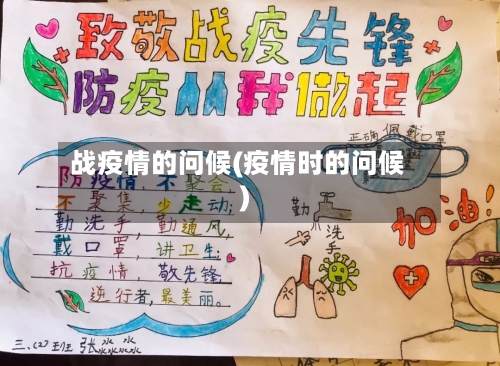 致敬战疫先锋
防疫从我做起
正确佩戴口罩
战疫情的问候(疫情时的问候
)
防疫情,不聚会,
不聚集,少走动;
勤洗手,勤通风,
戴口罩,讲卫生;
抗疫情,敬先锋,
逆行者,最美丽。
勤洗手
加油!
三、(2)班 张